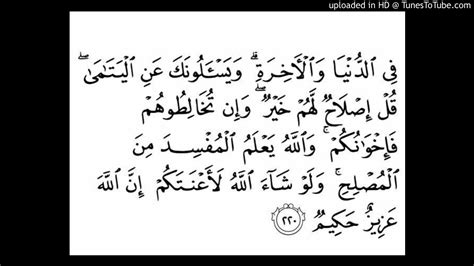 uploaded in HD @ TunesToTube.com
فِي ٱلدُّنۡيَا وَٱلۡأٓخِرَةِۗ وَيَسۡـَٔلُونَكَ عَنِ ٱلۡيَتَٰمَىٰۖ
قُلۡ إِصۡلَاحٞ لَّهُمۡ خَيۡرٞۖ وَإِن تُخَالِطُوهُمۡ
فَإِخۡوَٰنُكُمۡۚ وَٱللَّهُ يَعۡلَمُ ٱلۡمُفۡسِدَ مِنَ
ٱلۡمُصۡلِحِۚ وَلَوۡ شَآءَ ٱللَّهُ لَأَعۡنَتَكُمۡۚ إِنَّ ٱللَّهَ
عَزِيزٌ حَكِيمٞ ٢٢٠